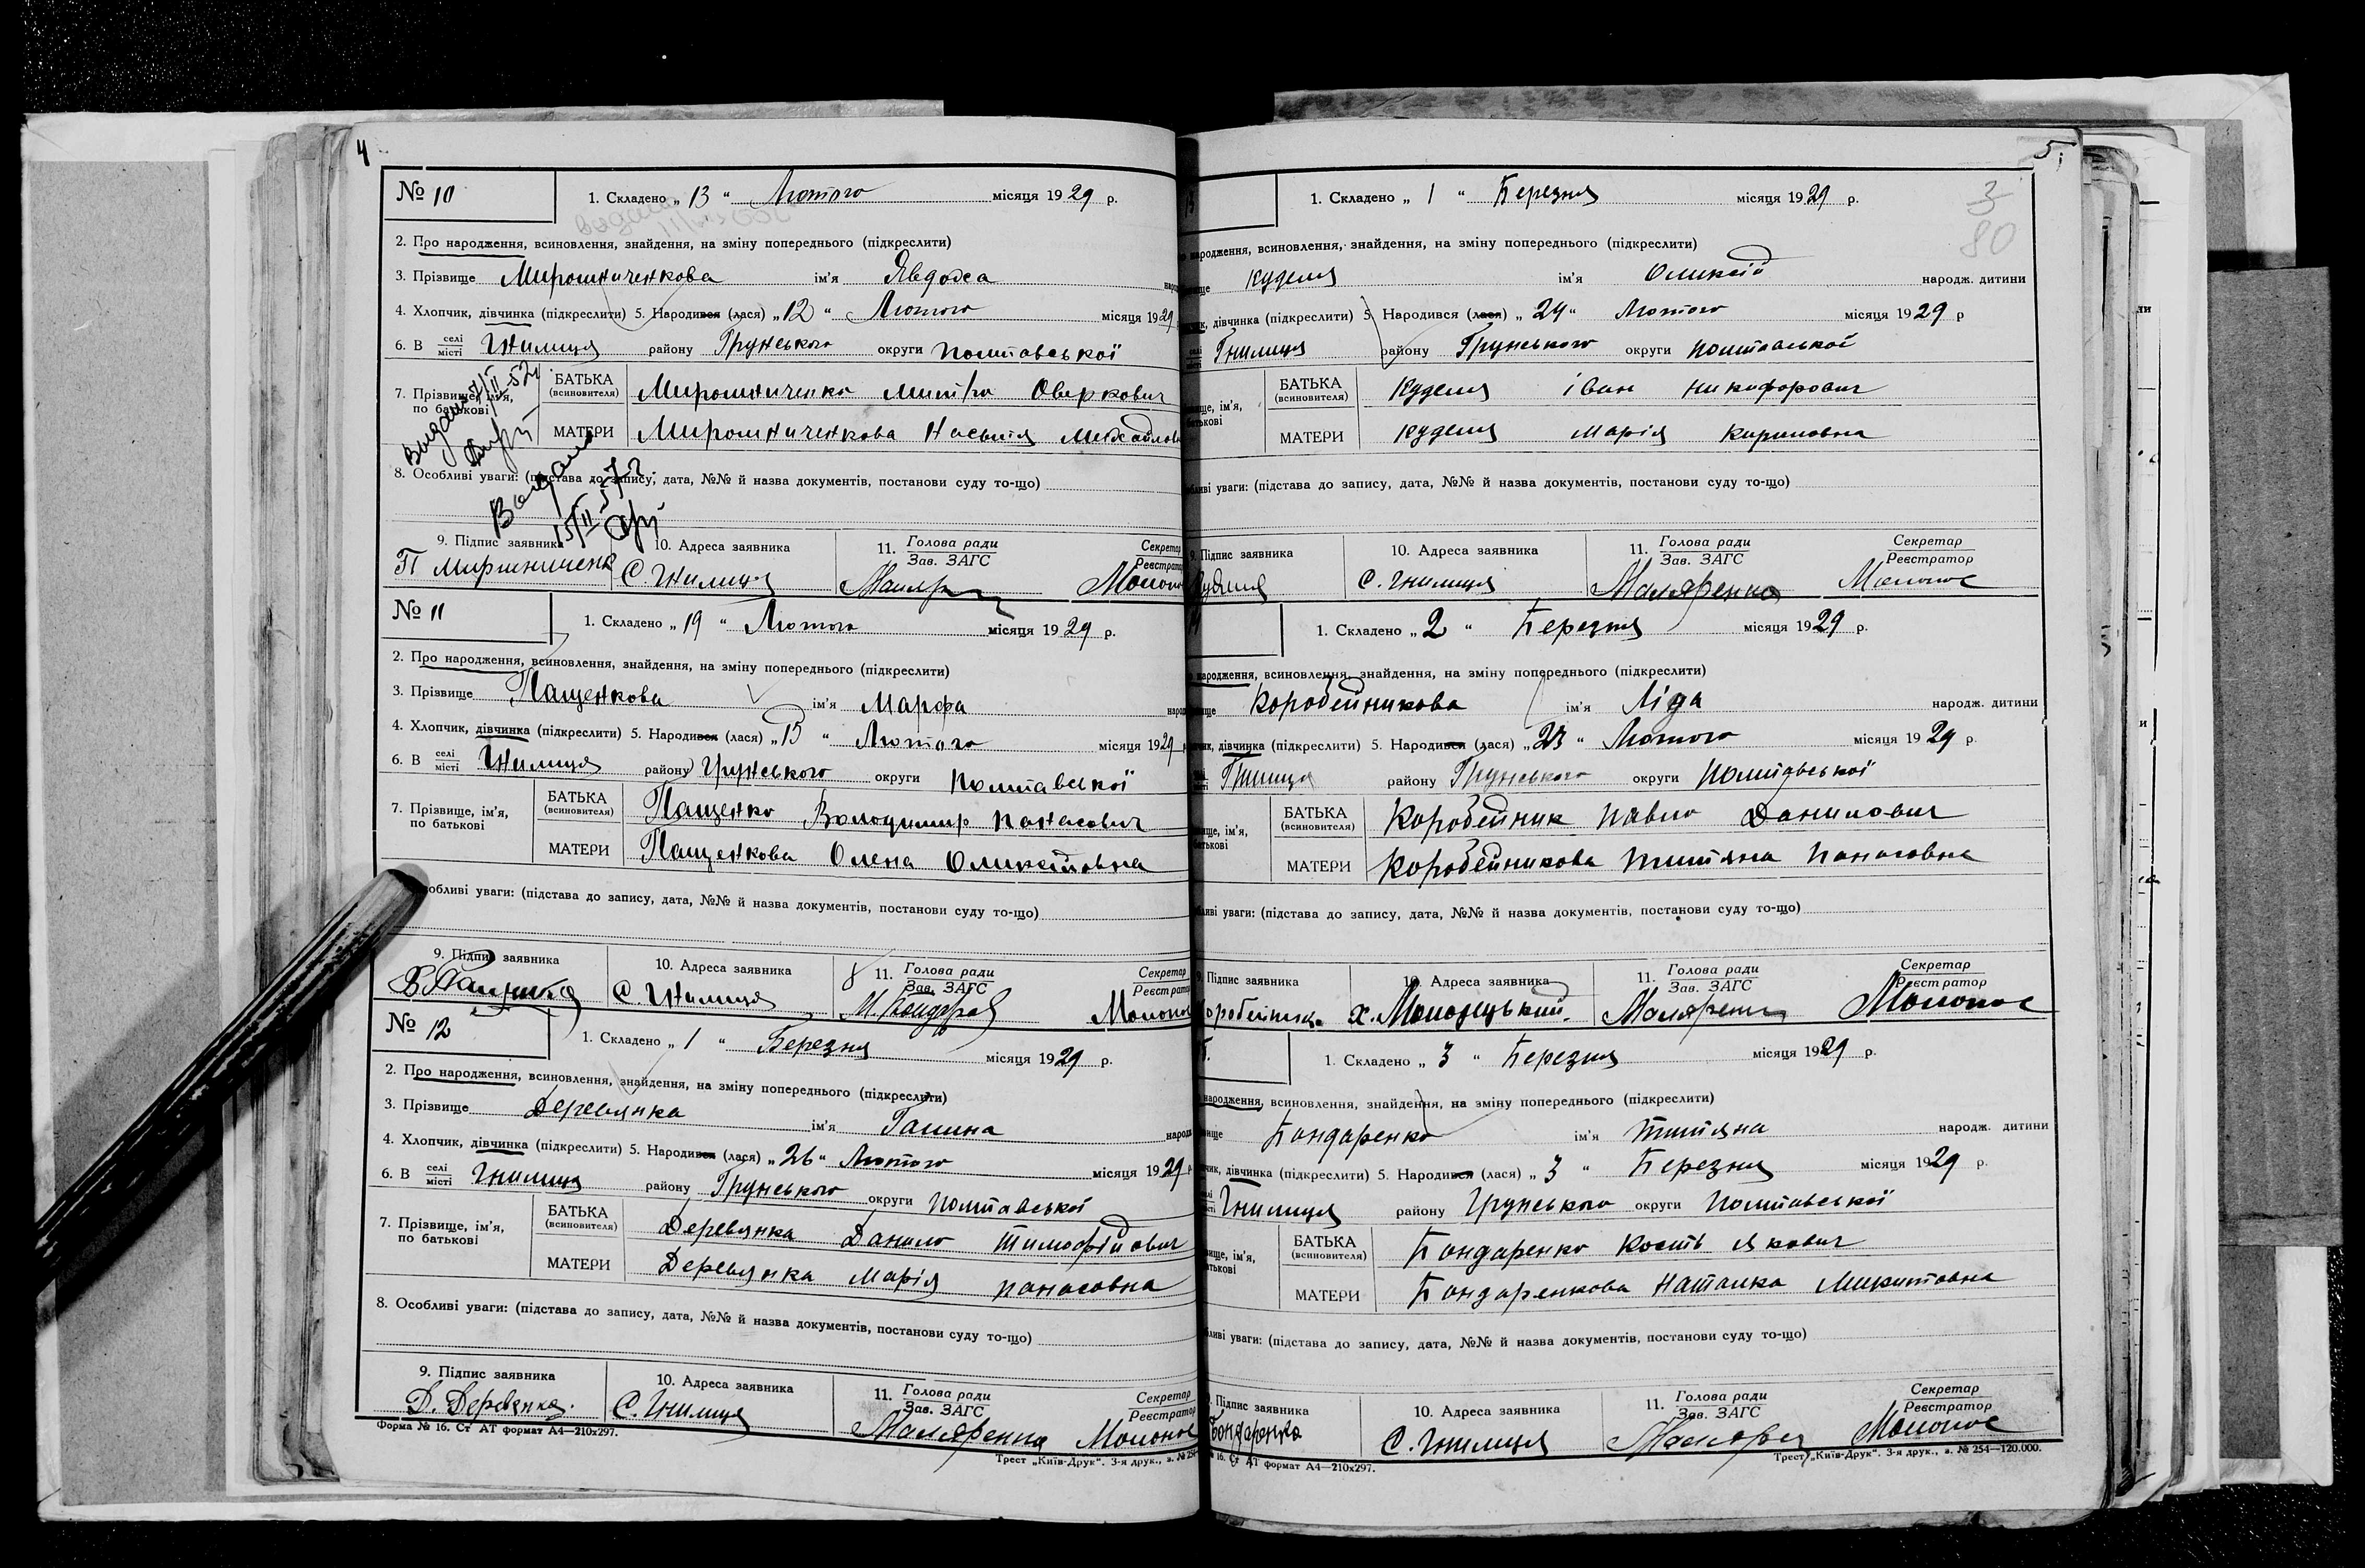 4
№ 10
1. Складено „ 13 “ Лютого місяця 1929 р.
2. Про народження, всиновлення, знайдення, на зміну попереднього (підкреслити)
3. Прізвище Мирошниченкова ім'я Явдоха
4. Хлопчик, дівчинка (підкреслити) 5. Народився (лася) „ 12 “ Лютого місяця 1929
6. В селі місті Гнилиця району Грунського округи Полтавської
7. Прізвище, ім'я, по батькові
БАТЬКА (всиновителя) Мирошниченко Митро Оверкович
МАТЕРИ Мирошниченкова Настя
8. Особливі уваги: (підстава до запису, дата, №№ й назва документів, постанови суду то-що)
9. Підпис заявника 10. Адреса заявника 11. Голова ради Зав. ЗАГС Секретар Реєстратор
С. Гнилиця
№ 11
1. Складено „ 19 “ Лютого місяця 1929 р.
2. Про народження, всиновлення, знайдення, на зміну попереднього (підкреслити)
3. Прізвище Пащенкова ім'я Марфа
4. Хлопчик, дівчинка (підкреслити) 5. Народився (лася) „ 15 “ Лютого місяця 1929
6. В селі місті Гнилиця району Грунського округи Полтавської
7. Прізвище, ім'я, по батькові
БАТЬКА (всиновителя) Пащенко Володимир Панасович
МАТЕРИ Пащенкова Олена Оликсіловна
особливі уваги: (підстава до запису, дата, №№ й назва документів, постанови суду то-що)
9. Підпис заявника 10. Адреса заявника 11. Голова ради Зав. ЗАГС Секретар Реєстратор
С. Гнилиця
№ 12
1. Складено „ 1 “ Березня місяця 1929 р.
2. Про народження, всиновлення, знайдення, на зміну попереднього (підкреслити)
3. Прізвище Деревянка ім'я Галина
4. Хлопчик, дівчинка (підкреслити) 5. Народився (лася) „ 26 “ Лютого місяця 1929
6. В селі місті Гнилиця району Грунського округи Полтавської
7. Прізвище, ім'я, по батькові
БАТЬКА (всиновителя) Деревянка Данило Тимофійович
МАТЕРИ Деревянка Марія Панасовна
8. Особливі уваги: (підстава до запису, дата, №№ й назва документів, постанови суду то-що)
9. Підпис заявника 10. Адреса заявника 11. Голова ради Зав. ЗАГС Секретар Реєстратор
Д. Деревянка. С. Гнилиця Маляренко
Форма № 16. Ст АТ формат А4—210x297.
Трест „Київ-Друк“. 3-я друк., з. №
5
3
80
1. Складено „ 1 “ Березня місяця 1929 р.
народження, всиновлення, знайдення, на зміну попереднього (підкреслити)
Куделя ім'я Оликсій народж. дитини
дівчинка (підкреслити) 5. Народився (лася) „ 24 “ Лютого місяця 1929 р
Гнилиця району Грунського округи Полтавської
БАТЬКА (всиновителя) Куделя Іван Никифорович
МАТЕРИ Куделя Марія Кириловна
уваги: (підстава до запису, дата, №№ й назва документів, постанови суду то-що)
9. Підпис заявника 10. Адреса заявника 11. Голова ради Зав. ЗАГС Секретар Реєстратор
С. Гнилиця Маляренко
1. Складено „ 2 “ Березня місяця 1929 р.
народження, всиновлення, знайдення, на зміну попереднього (підкреслити)
Коробейникова ім'я Ліда народж. дитини
дівчинка (підкреслити) 5. Народився (лася) „ 23 “ Лютого місяця 1929 р.
Гнилиця району Грунського округи Полтавської
БАТЬКА (всиновителя) Коробейник Павло Данилович
МАТЕРИ Коробейникова Титяна Панасовна
уваги: (підстава до запису, дата, №№ й назва документів, постанови суду то-що)
9. Підпис заявника 10. Адреса заявника 11. Голова ради Зав. ЗАГС Секретар Реєстратор
1. Складено „ 3 “ Березня місяця 1929 р.
народження, всиновлення, знайдення, на зміну попереднього (підкреслити)
Бондаренко ім'я Титяна народж. дитини
дівчинка (підкреслити) 5. Народився (лася) „ 3 “ Березня місяця 1929 р.
Гнилиця району Грунського округи Полтавської
БАТЬКА (всиновителя) Бондаренко Кость Якович
МАТЕРИ Бондаренкова Наталка Микитовна
уваги: (підстава до запису, дата, №№ й назва документів, постанови суду то-що)
Підпис заявника 10. Адреса заявника 11. Голова ради Зав. ЗАГС Секретар Реєстратор
Бондаренко С. Гнилиця
16. Ст АТ формат А4—210x297.
Трест „Київ-Друк“. 3-я друк., з. № 254—120.000.